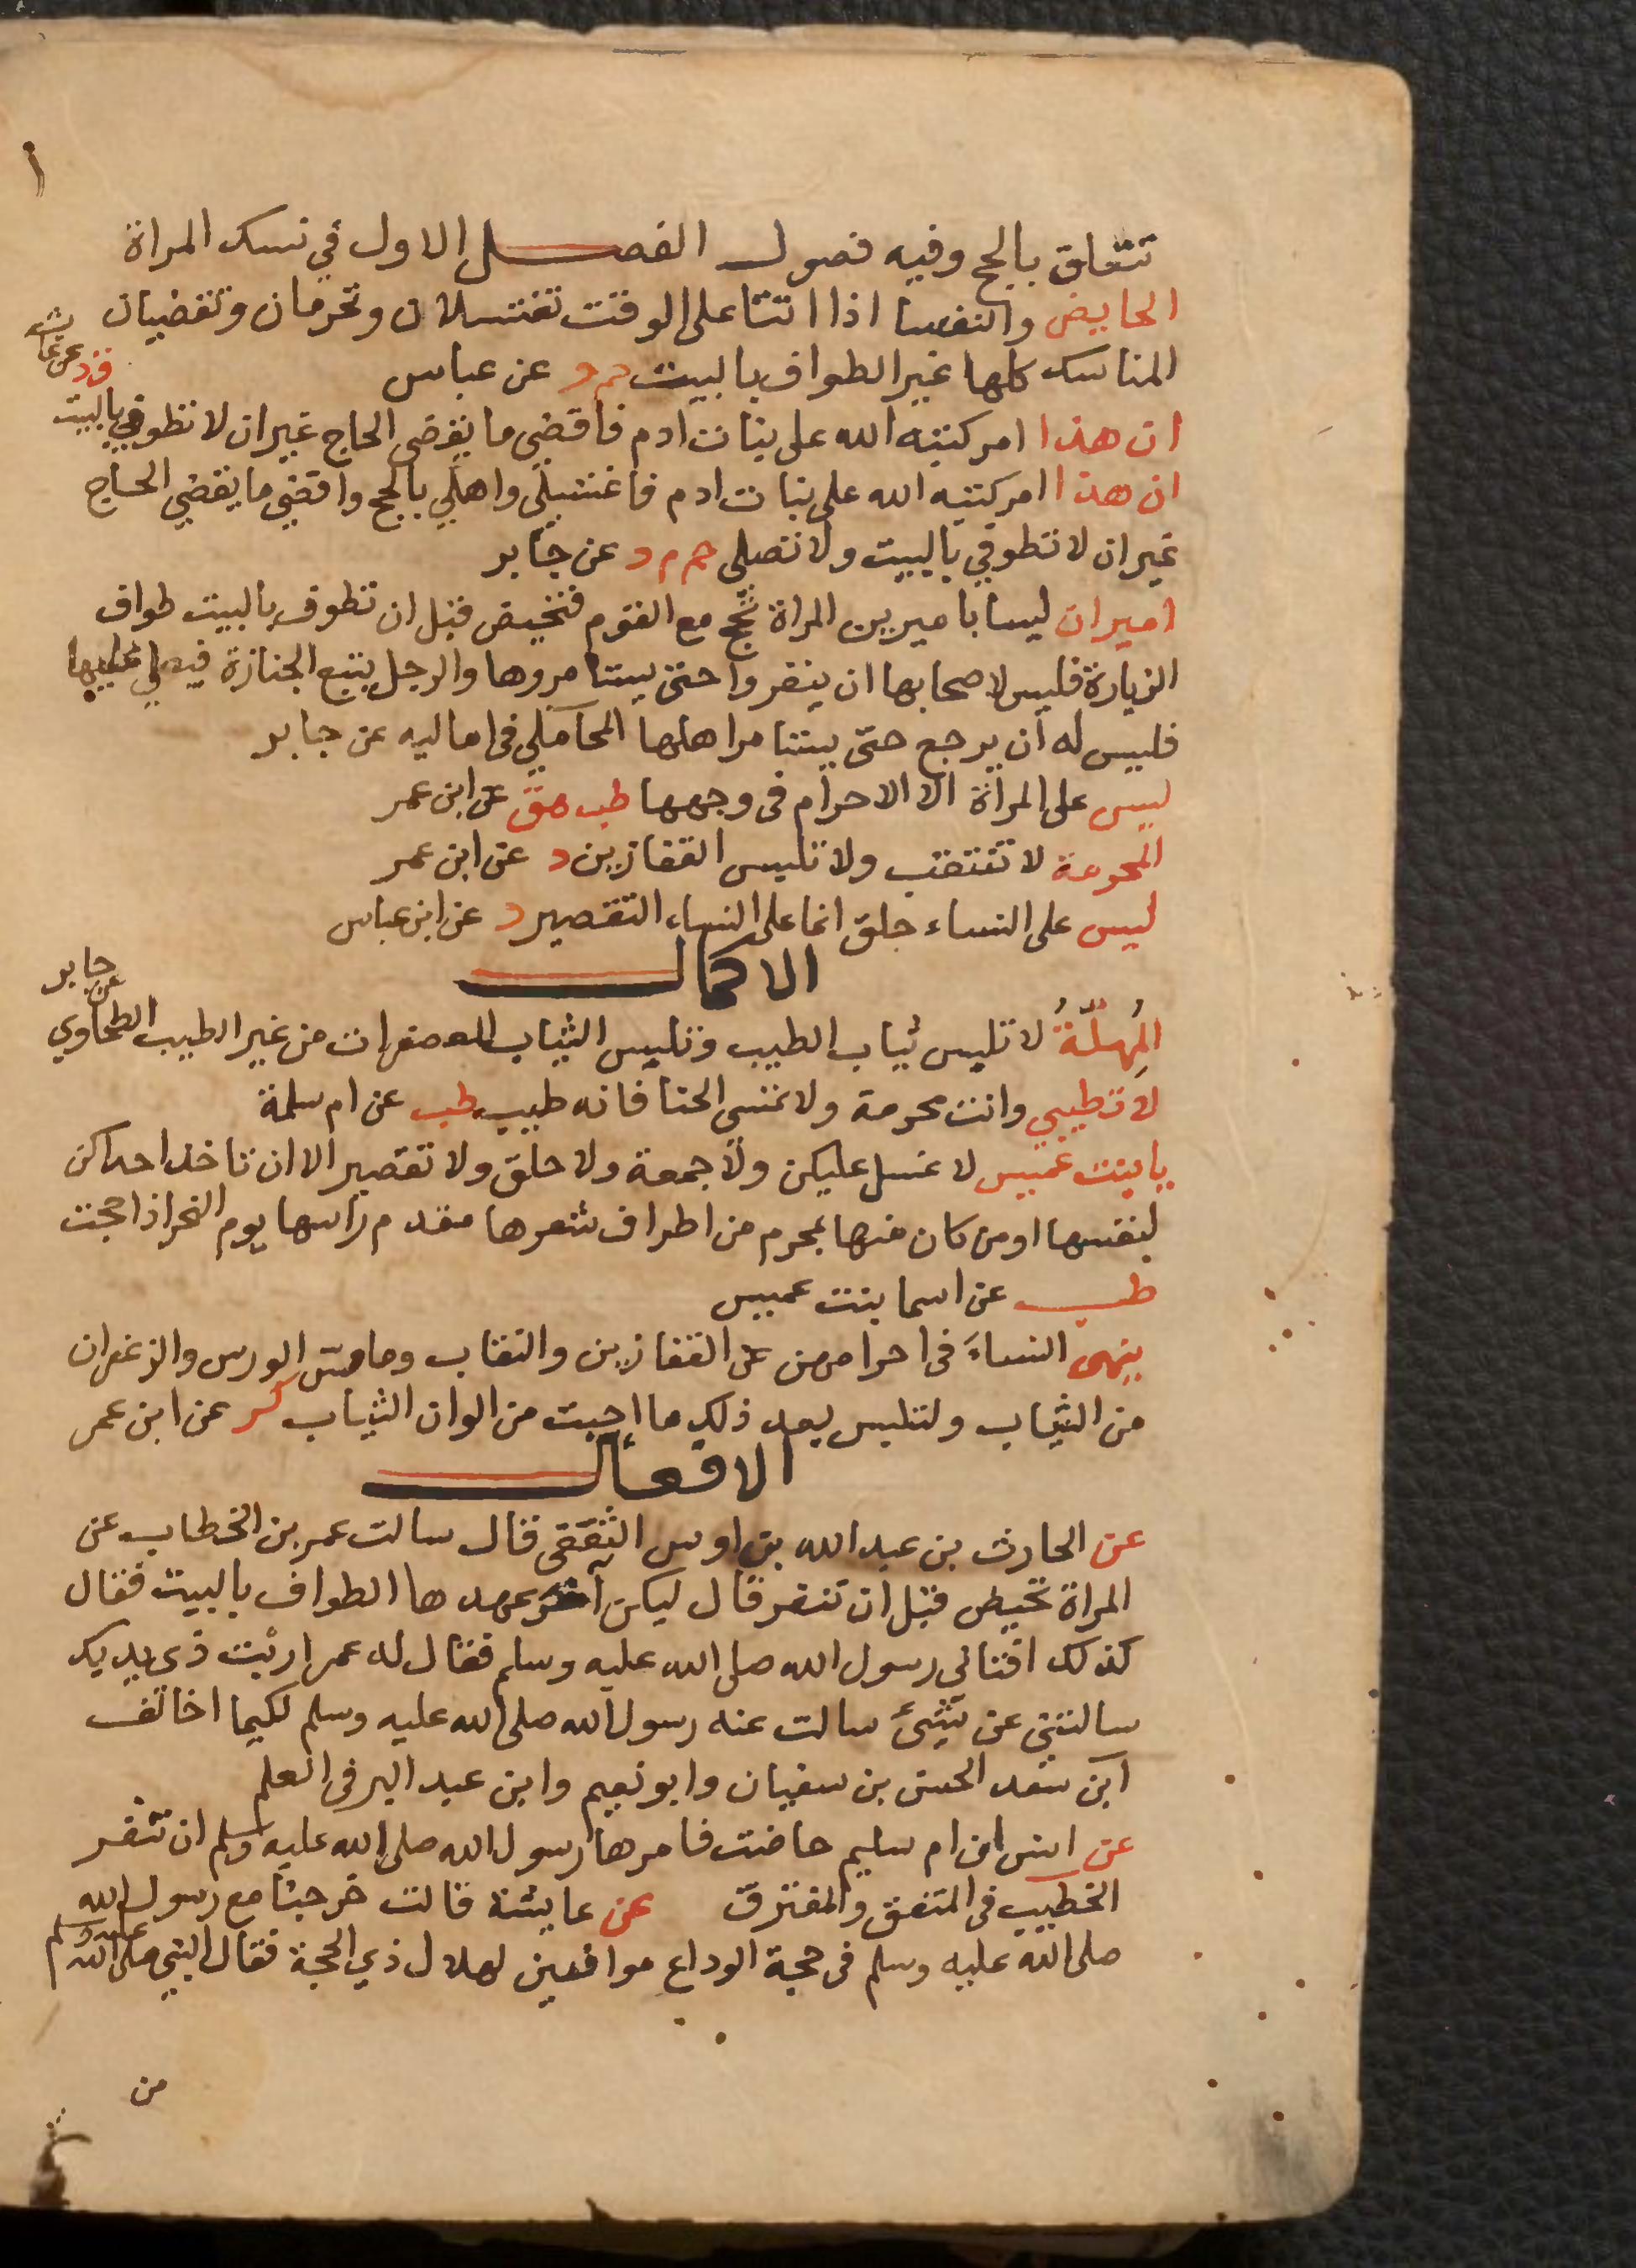 تتعلق بالحج وفيه فصول الفصل الاول في نسك المراة
الحايض والنفسا اذا اتتا على الوقت تغتسلان وتحرمان وتقضيان
المناسك كلها غير الطواف بالبيت حم د عن عباس
ان هذا امر كتبه الله على بنات ادم فاقضي ما يقضي الحاج غير ان لا تطوفي بالبيت
ق د عن عائشه
ان هذا امر كتبه الله على بنات ادم فاغتسلي واهلي بالحج واقضي ما يقضي الحاج
غير ان لا تطوفي بالبيت ولا تصلي حم م د عن جابر
اميران ليسا باميرين المراة تحج مع القوم فتحيض قبل ان تطوف بالبيت طواف
الزيارة فليس لاصحابها ان ينفروا حتى يستامروها والرجل يتبع الجنازة فيصلي عليها
فليس له ان يرجع حتى يستامر اهلها المحاملي في اماليه عن جابر
ليس على المراة الا الاحرام في وجهها طب هق عن ابن عمر
المحرمة لا تنتقب ولا تلبس القفازين د عن ابن عمر
ليس على النساء حلق انما على النساء التقصير د عن ابن عباس
الاكمال
المُهِلَّةُ لا تلبس ثياب الطيب وتلبس الثياب المعصفرات من غير الطيب الطحاوي
عن جابر
لا تطيبي وانت محرمة ولا تمسي الحنا فانه طيب طب عن ام سلمة
يا بنت عميس لا غسل عليكن ولا جمعة ولا حلق ولا تقصير الا ان تاخذ احداكن
لنفسها او من كان منها بمحرم من اطراف شعرها مقدم راسها يوم النحر اذا حجت
طب عن اسما بنت عميس
ينهى النساءَ في احرامهن عن القفازين والنقاب وما مس الورس والزعفران
من الثياب ولتلبس بعد ذلك ما احبت من الوان الثياب كر عن ابن عمر
الافعال
عن الحارث بن عبد الله بن اوس الثقفي قال سالت عمر بن الخطاب عن
المراة تحيض قبل ان تنفر قال ليكن آخر عهدها الطواف بالبيت فقال
كذلك افتاني رسول الله صلى الله عليه وسلم فقال له عمر اربت ذي يديك
سالتني عن شيئ سالت عنه رسول الله صلى الله عليه وسلم لكيما اخالف
ابن سعد الحسن بن سفيان وابو نعيم وابن عبد البر في العلم
عن انس ان ام سليم حاضت فامرها رسول الله صلى الله عليه وسلم ان تنفر
الخطيب في المتفق والمفترق عن عايشة قالت خرجنا مع رسول الله
صلى الله عليه وسلم في حجة الوداع موافين لهلال ذي الحجة فقال النبي صلى الله عليه وسلم
من